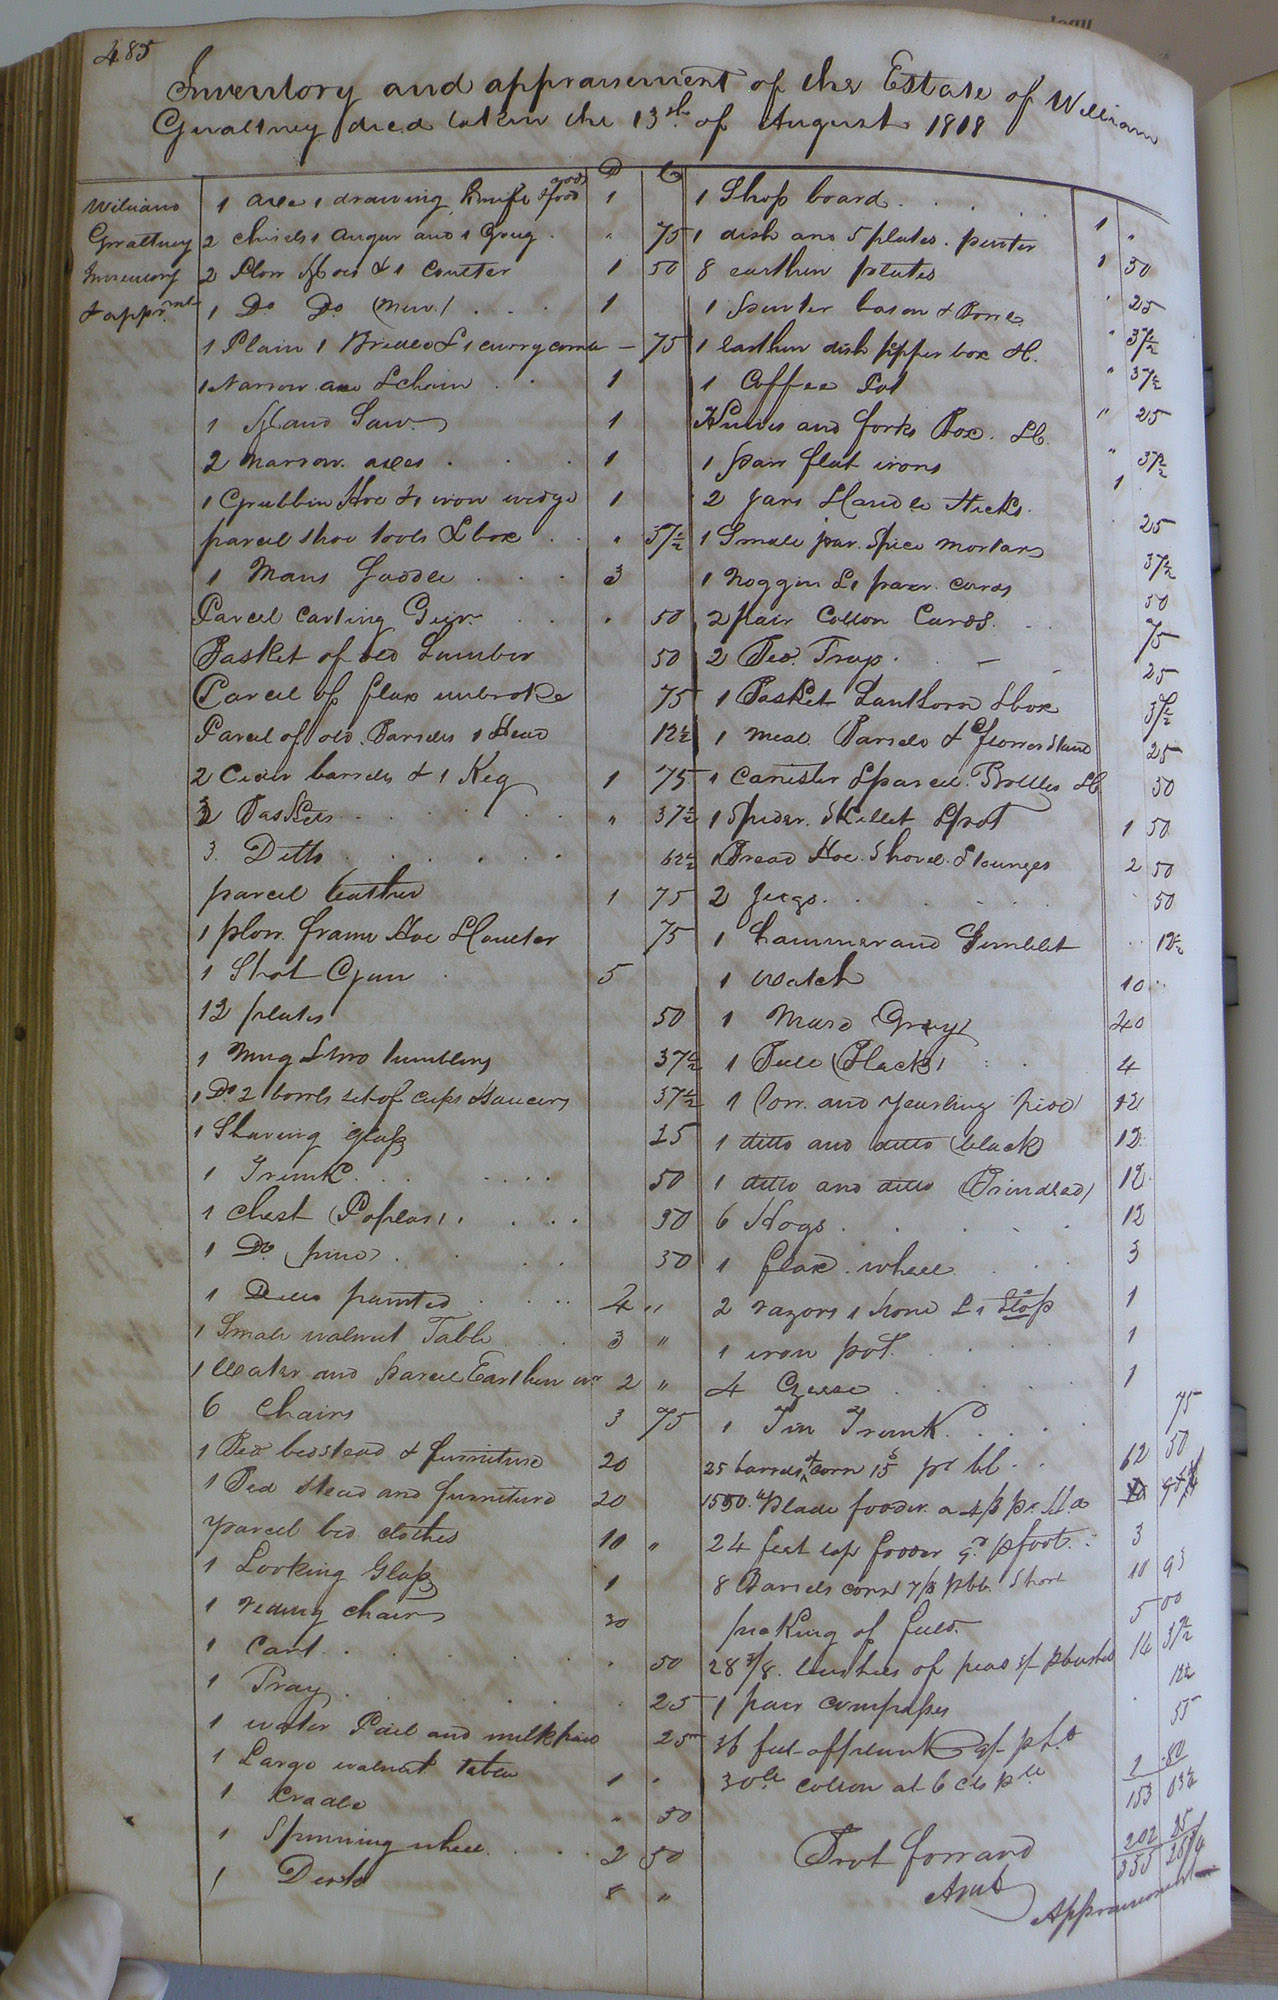 485
Inventory and appraisement of the Estate of William
Gwaltney died taken the 13th of August 1818
D C
William
Gwaltney
Inventory
& apprmt
1 axe 1 drawing knife & food 1
2 chisels 1 Augur and 1 Goug . " 75
2 Plow Hoes & 1 Coulter 1 50
1 Do Do (new) . . . 1
1 Plain 1 Bridle & 1 curry comb – 75
1 Narrow axe & chain . . 1
1 Hand Saw 1
2 narrow axes . . . 1
1 Grubbin Hoe & 1 iron wedge 1
parcel shoe tools & box . . " 37½
1 Mans Saddle . . . 3
Parcel carting Geer . . . 50
Basket of old Lumber 50
Parcel of flax unbroke 75
Parcel of old Barrels 1 Stead 12½
2 Cider barrels & 1 Keg 1 75
3 Baskets . . . . " 37½
3. Ditto . . . . . . 62½
parcel leather 1 75
1 plow frame Hoe & Coulter 75
1 Shot Gun . 5
12 plates 50
1 Mug & two tumblers 37½
1 Do 2 bowls set of cups & Saucers 37½
1 Shaving glass 25
1 Trunk . . . . . 50
1 Chest (Poplar) . . . . 50
1 Do (pine) . . . 50
1 Ditto painted . . . . 4 "
1 Small walnut Table . . 3 "
1 Waiter and parcel Earthen wr 2 "
6 Chairs 3 75
1 Bed bedstead & furniture 20
1 Bed stead and furniture 20
parcel bed clothes 10 "
1 Looking Glass 1
1 riding chair 30
1 Cart . . . . . 50
1 Tray . . . . . 25
1 water Pail and milk pail 25
1 Large walnut table 1 "
1 Cradle " 50
1 Spinning wheel . . . 2 50
1 Desk 8 "
1 Shop board . . . . . 1 "
1 dish and 5 plates . pewter 1 50
8 earthen plates " 25
1 pewter bason & Bowls " 37½
1 Earthen dish pepper box &C. " 37½
1 Coffee Pot " 25
Knives and forks Box . &C. " 37½
1 pair flat irons 1
2 jars & Candle Sticks . 25
1 Small jar . Spice mortar 37½
1 Noggin & 1 pair . cards 50
2 pair Cotton Cards . . . 75
2 Bea. Trap . – – 25
1 Basket Lanthorn & box 37½
1 meal Barrels & flower Stand 25
1 Canister & parcel Bottles &C 50
1 Spider . Skillet & pot 1 50
1 Bread Hoe . Shovel & tounges 2 50
2 Jugs . . . . . . 50
1 hammer and Gimblet . . 12½
1 Watch 10 . .
1 Mare Gray 40
1 Bull (Black) . . 4
1 Cow and yearling pied 12
1 ditto and ditto (black) 12
1 ditto and ditto (Brindled) 12
6 Hogs . . . . . 12
1 flax . wheel . . . 3
2 razors 1 hone & 1 Strop 1
1 iron pot . . . . . 1
4 Geese . . . . . 1
1 Tin Trunk . . . . 75
25 barrels of corn 15s pr bl . . 62 50
1550. lb Blade fodder a 4/3 pr. Hd
24 feet top fodder 9d p foot . : 3
8 Barrels corn 7/3 pbb. Short 10 93
picking of field 5 00
28 3/8 bushels of peas 3/ p bushel 16 37½
1 pair compasses . 12½
36 feet of plank p ft 55
30 lb cotton at 6 cts p lb 2 80
153 03½
202 25
355 28¾
Brot forward
Amt Appraisement